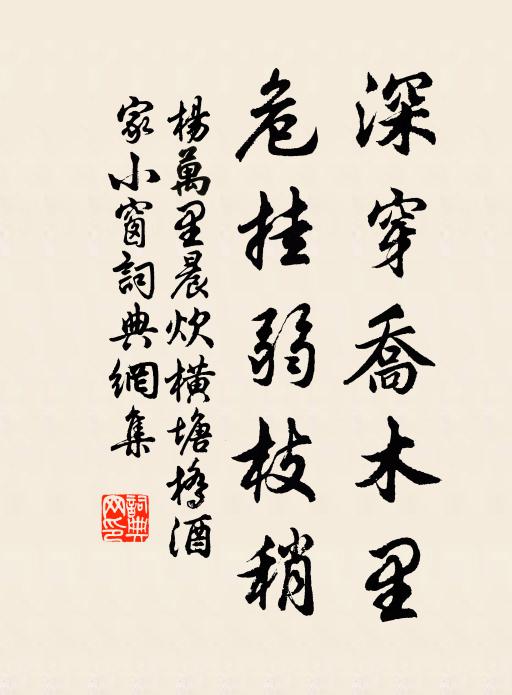 深穿喬木里
危挂弱枝稍
楊萬里晨炊橫塘橋酒
家小窗詞典網集
詞典
网印